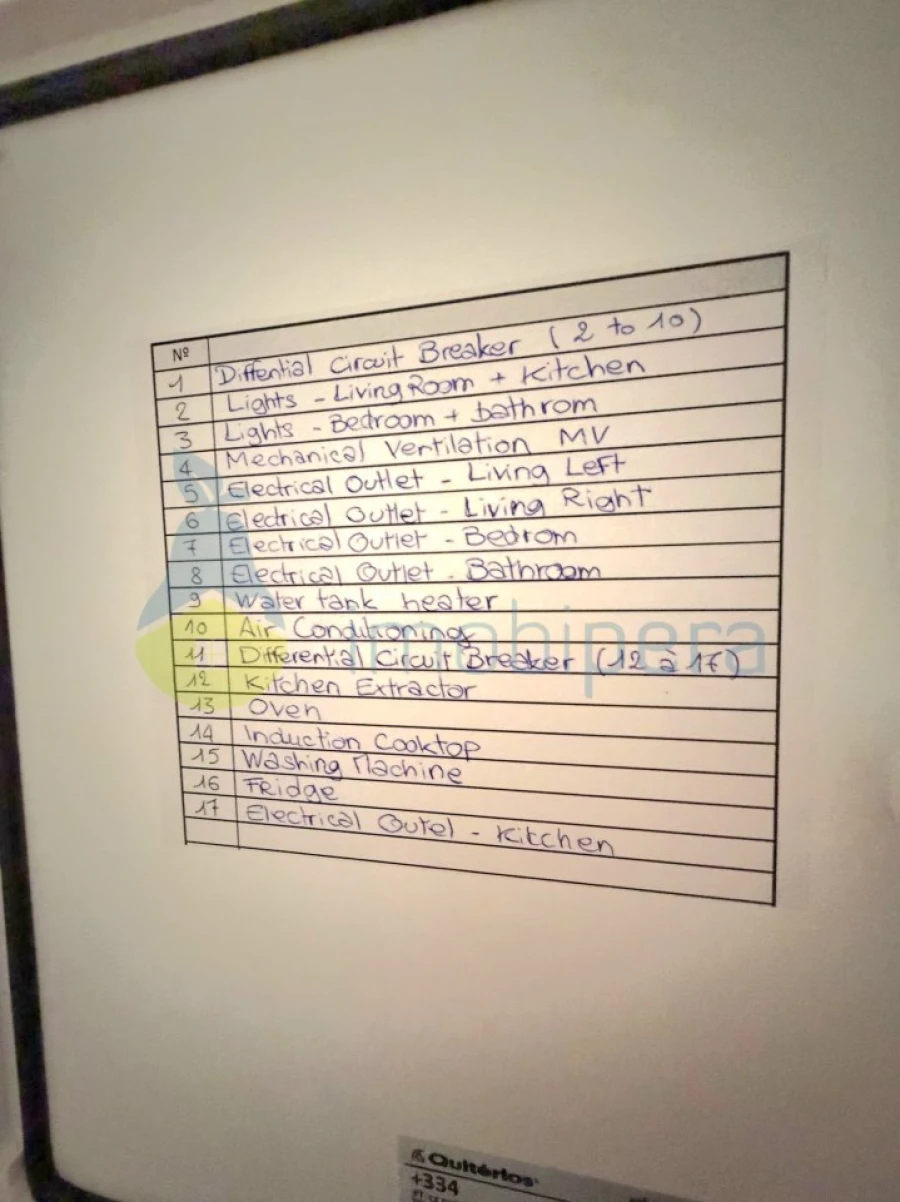 Nº
1 Diffential Circuit Breaker (2 to 10)
2 Lights - Living Room + Kitchen
3 Lights - Bedroom + bathrom
4 Mechanical Ventilation MV
5 Electrical Outlet - Living Left
6 Electrical Outlet - Living Right
7 Electrical Outlet - Bedrom
8 Electrical Outlet - Bathroom
9 Water tank heater
10 Air Conditioning
11 Differential Circuit Breaker (12 à 17)
12 Kitchen Extractor
13 Oven
14 Induction Cooktop
15 Washing Machine
16 Fridge
17 Electrical Outel - Kitchen
imobipera
Quitérios
+334